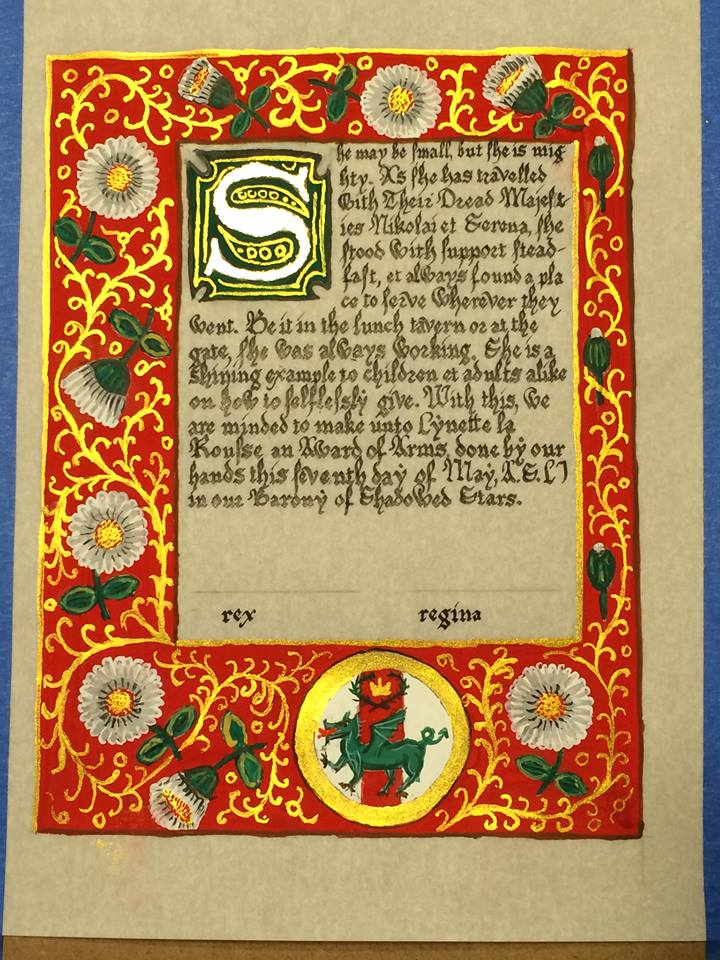 She may be small, but she is mig
hty. As she has travelled
with Their Dread Majest-
ies Nikolai et Serena, she
stood with support stead-
fast, et always found a pla
ce to serve wherever they
went. Be it in the lunch tavern or at the
gate, she was always working. She is a
shining example to children et adults alike
on how to selflessly give. With this, we
are minded to make unto Lynette la
Rousse an Award of Arms, done by our
hands this seventh day of May, A.S. L I
in our Barony of Shadowed Stars.
rex regina